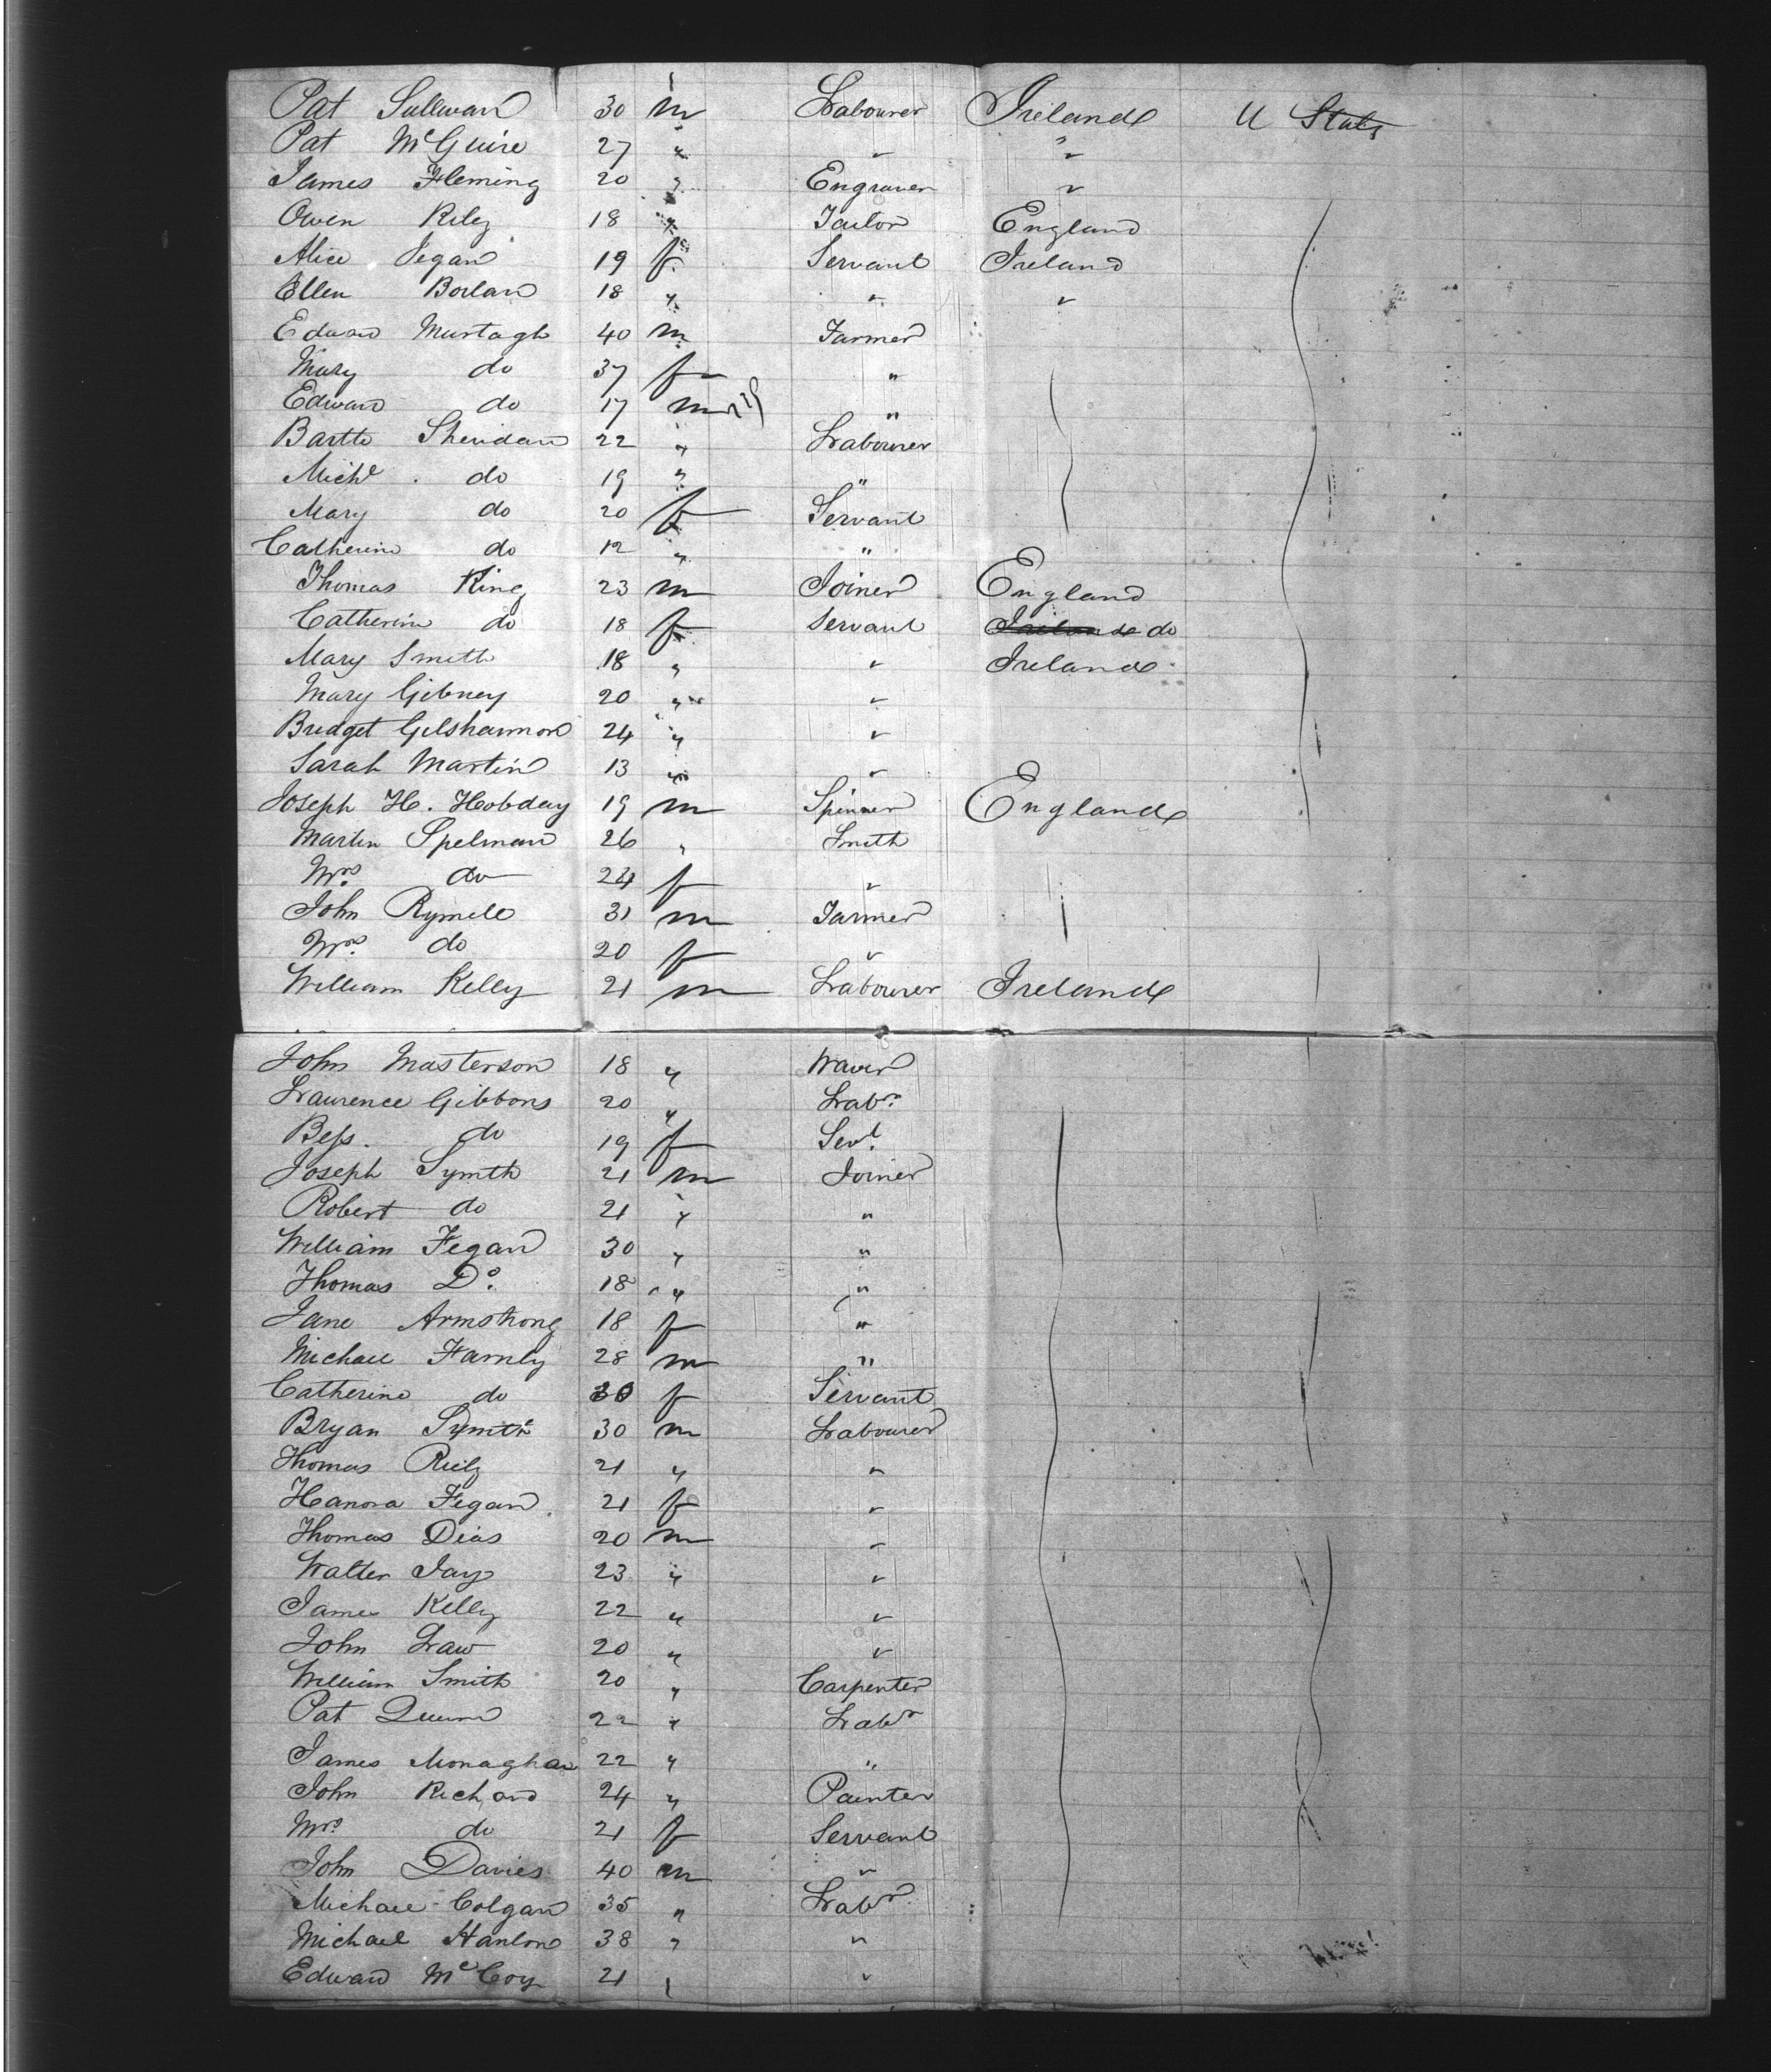 Pat Sullivan 30 m Labourer Ireland U States
Pat McGuire 27 " " "
James Fleming 20 " Engraver "
Owen Riley 18 " Tailor England
Alice Fegan 19 f Servant Ireland
Ellen Boylan 18 " " "
Edward Murtagh 40 m Farmer
Mary do 37 f "
Edward do 17 m "
Bartle Sheridan 22 " Labourer
Michl do 19 " "
Mary do 20 f Servant
Catherine do 12 " "
Thomas King 23 m Joiner England
Catherine do 18 f Servant Ireland do
Mary Smith 18 " " Ireland
Mary Gibney 20 " "
Bridget Gilshannon 24 " "
Sarah Martin 13 " "
Joseph H. Hobday 19 m Spinner England
Martin Spelman 26 " Smith
Mrs. do 24 f "
John Rymell 31 m Farmer
Mrs. do 20 f "
William Kelly 21 m Labourer Ireland
John Masterson 18 " Waver
Laurence Gibbons 20 " Labr.
Bess. do 19 f Sevt.
Joseph Symth 21 m Joiner
Robert do 21 " "
William Fegan 30 " "
Thomas Do. 18 " "
Jane Armstrong 18 f "
Michael Farnly 28 m "
Catherine do 30 f Servant
Bryan Symth 30 m Labourer
Thomas Riely 21 " "
Hanora Fegan 21 f "
Thomas Dias 20 m "
Walter Jay 23 " "
James Kelly 22 " "
John Law 20 " "
William Smith 20 " Carpenter
Pat Quinn 22 " Labr
James Monaghan 22 " "
John Richard 24 " Painter
Mrs. do 21 f Servant
John Davies 40 m "
Michael Colgan 35 " Labr.
Michael Hanlon 38 " "
Edward McCoy 21 " "